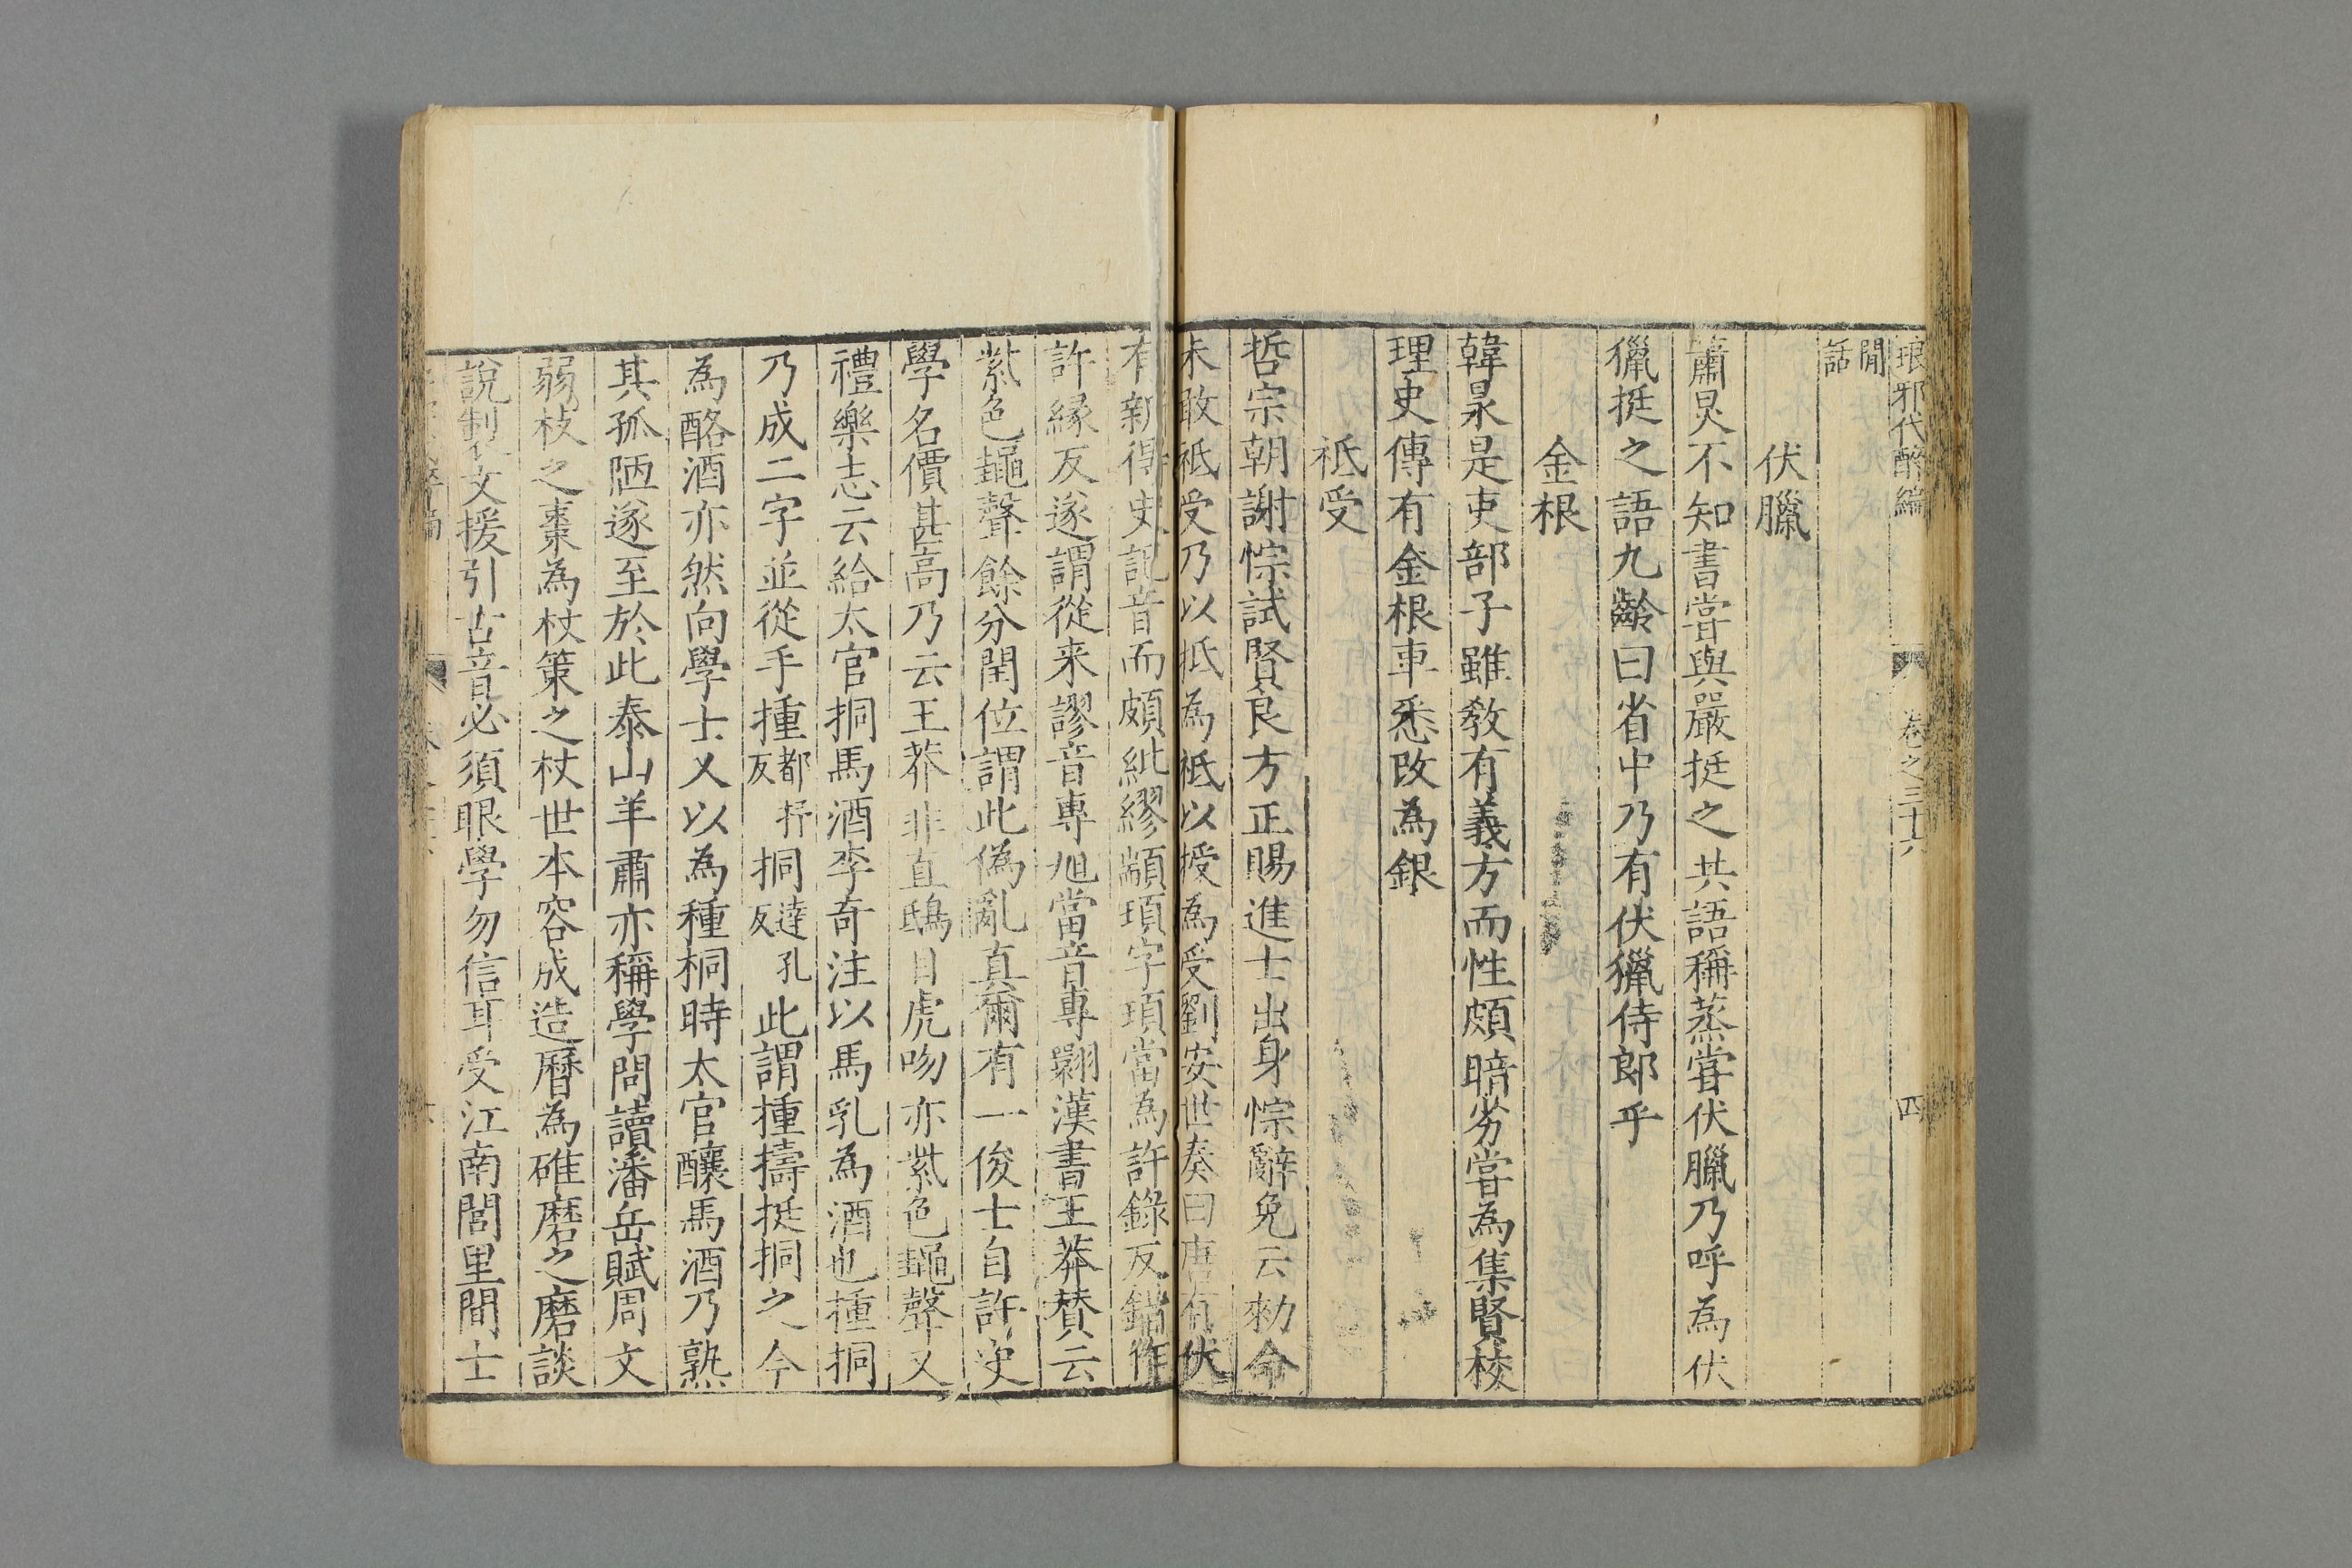 琅邪代醉編 卷之三十六 四
閒
話
伏臘
蕭炅不知書嘗與嚴挺之共語稱蒸嘗伏臘乃呼為伏
獵挺之語九齡曰省中乃有伏獵侍郎乎
金根
韓㫤是吏部子雖敎有義方而性頗暗劣嘗為集賢校
理史傳有金根車悉改為銀
祗受
哲宗朝謝悰試賢良方正賜進士出身悰辭免云勑命
未敢祗受乃以抵為祗以授為受劉安世奏曰唐有伏
有新得史記音而頗紕繆顓頊字頊當為許錄反錯作
許緣反遂謂從来謬音專旭當音專翾漢書王莽賛云
紫色䵷聲餘分閏位謂此偽亂真爾有一俊士自許史
學名價甚高乃云王莽非直鴟目虎吻亦紫色䵷聲又
禮樂志云給太官挏馬酒李奇注以馬乳為酒也揰挏
乃成二字並從手揰都抒反挏達孔反此謂揰擣挺挏之今
為酪酒亦然向學士又以為種桐時太官釀馬酒乃熟
其孤陋遂至於此泰山羊肅亦稱學問讀潘岳賦周文
弱枝之棗為杖策之杖世本容成造曆為碓磨之磨談
說制文援引古音必須眼學勿信耳受江南閭里間士